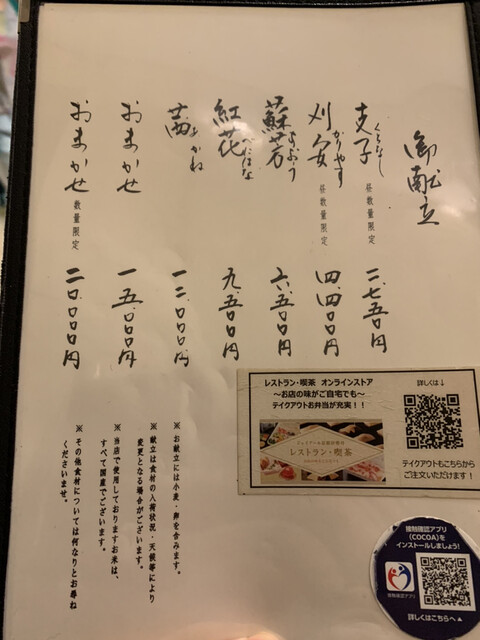 御献立
支子 くちなし 昼数量限定 二、七五〇円
刈安 かりやす 昼数量限定 四、四〇〇円
蘇芳 すおう 六、五〇〇円
紅花 べにばな 九、五〇〇円
茜 あかね 一二、〇〇〇円
おまかせ 一五、〇〇〇円
おまかせ 数量限定 二〇、〇〇〇円
※お献立には小麦・卵を含みます。
※献立は食材の入荷状況・天候等により
変更となる場合がございます。
※当店で使用しておりますお米は、
すべて国産でございます。
※その他食材については何なりとお尋ね
くださいませ。
レストラン・喫茶 オンラインストア
～お店の味がご自宅でも～
テイクアウトお弁当が充実！！
ジェイアール京都伊勢丹
レストラン・喫茶
詳しくは↓
テイクアウトもこちらから
ご注文いただけます！
接触確認アプリ
(COCOA)を
インストールしましょう！
接触確認アプリ
詳しくはこちらへ▲